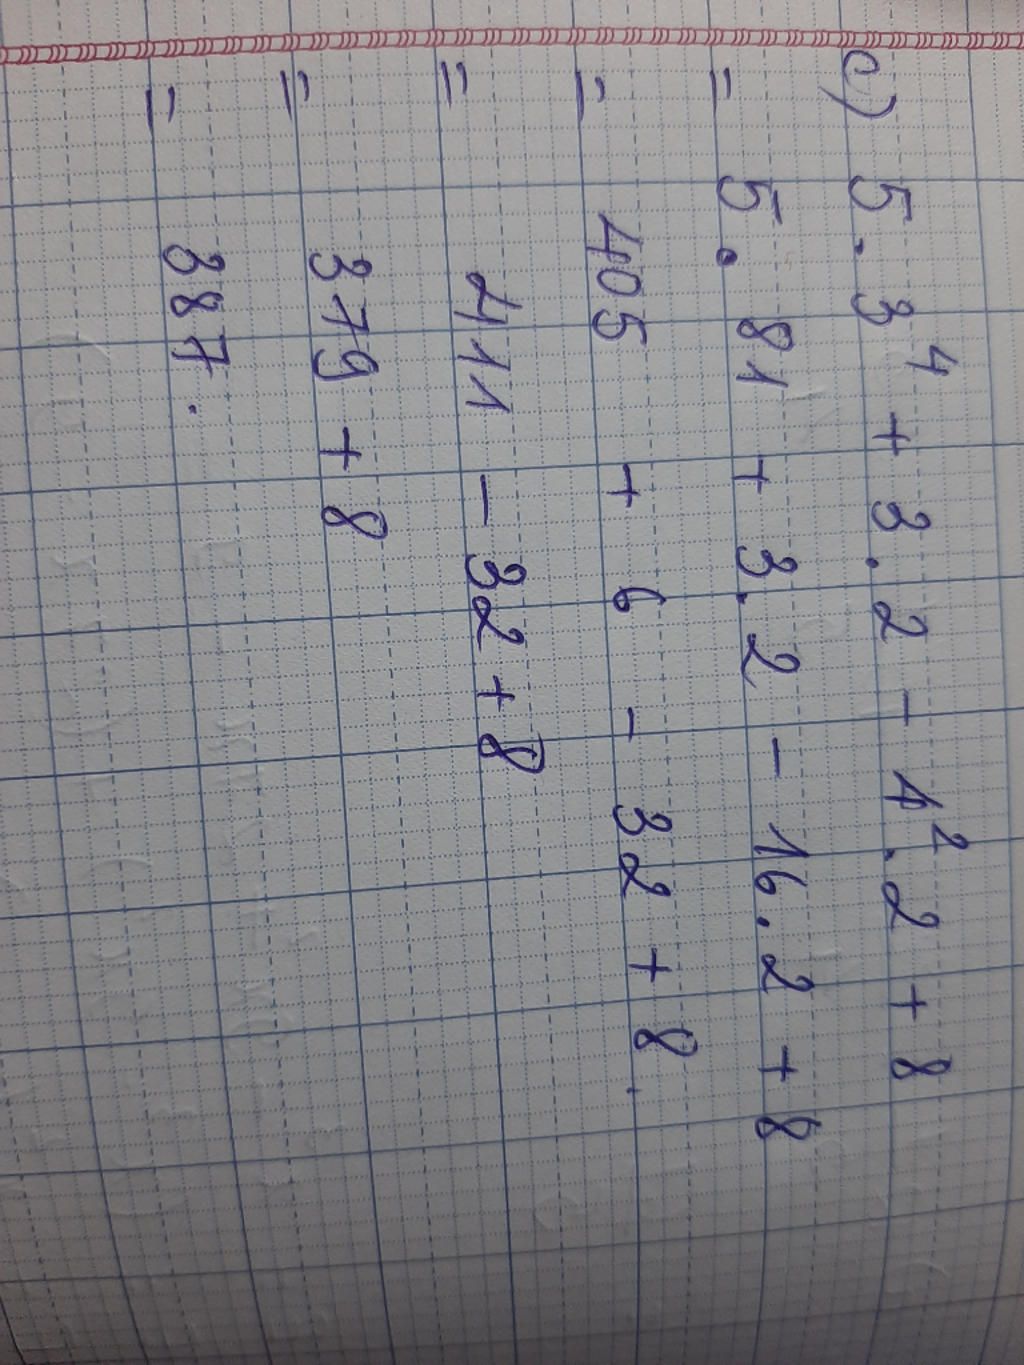 c) 5 . 3⁴ + 3 . 2 - 4² . 2 + 8
= 5 . 81 + 3 . 2 - 16 . 2 + 8
= 405 + 6 - 32 + 8 .
= 411 - 32 + 8
= 379 + 8
= 387 .